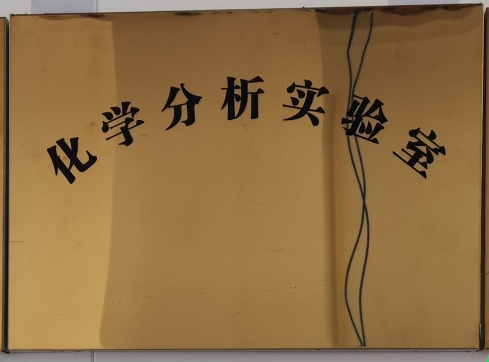 化学分析实验室